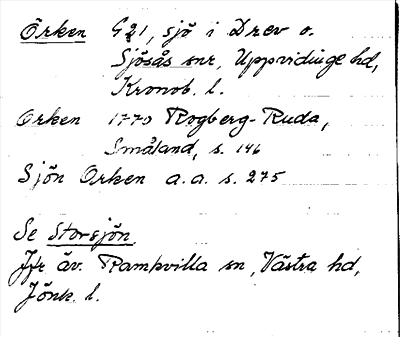 Örken G21, sjö i Drev o.
Sjösås snr, Uppvidinge hd,
Kronob. l.
Orken 1770 Rogberg-Ruda,
Småland, s. 146
Sjön Orken a.a. s. 275
Se Storsjön
Jfr äv. Ramkvilla sn, Västra hd,
Jönk. l.